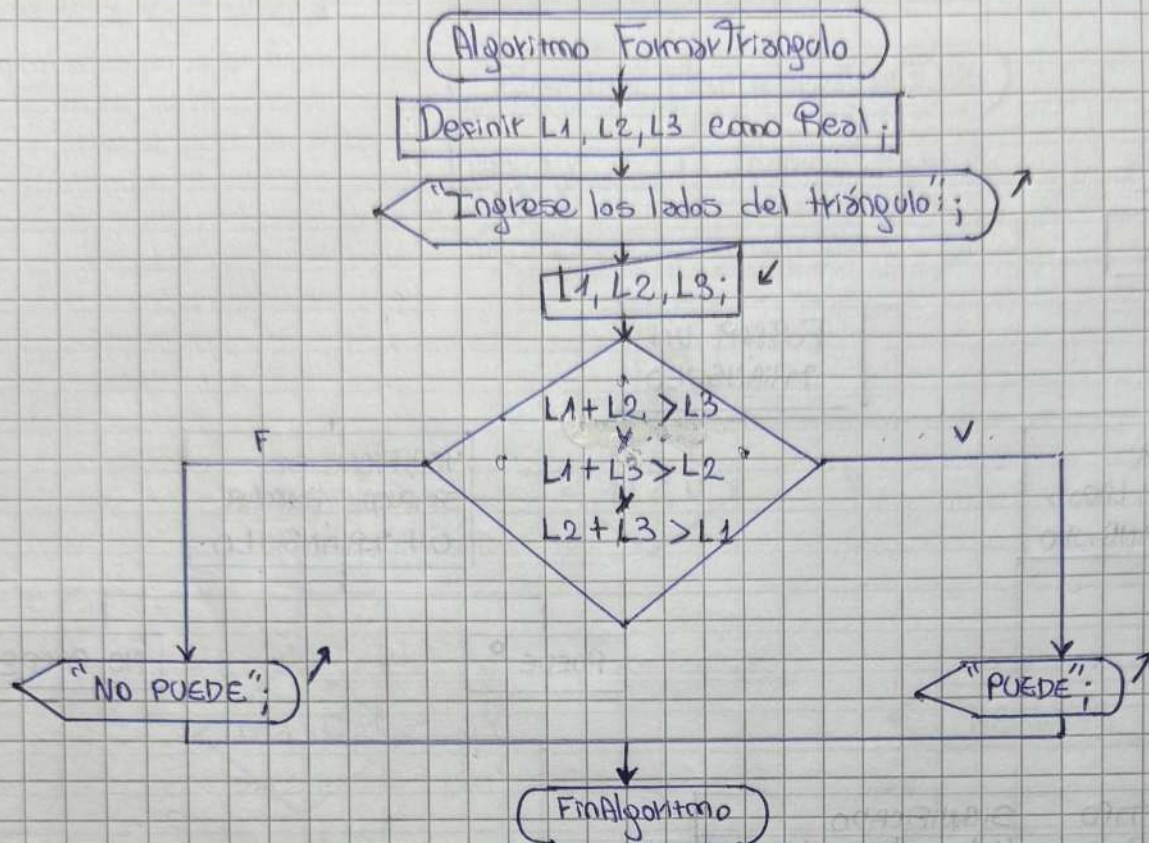 Algoritmo FormarTriangulo
Definir L1, L2, L3 como Real;
"Ingrese los lados del triángulo";
L1, L2, L3;
L1+L2 >L3
Y
L1+L3 >L2
Y
L2+L3 >L1
F
V
"NO PUEDE";
"PUEDE";
FinAlgoritmo